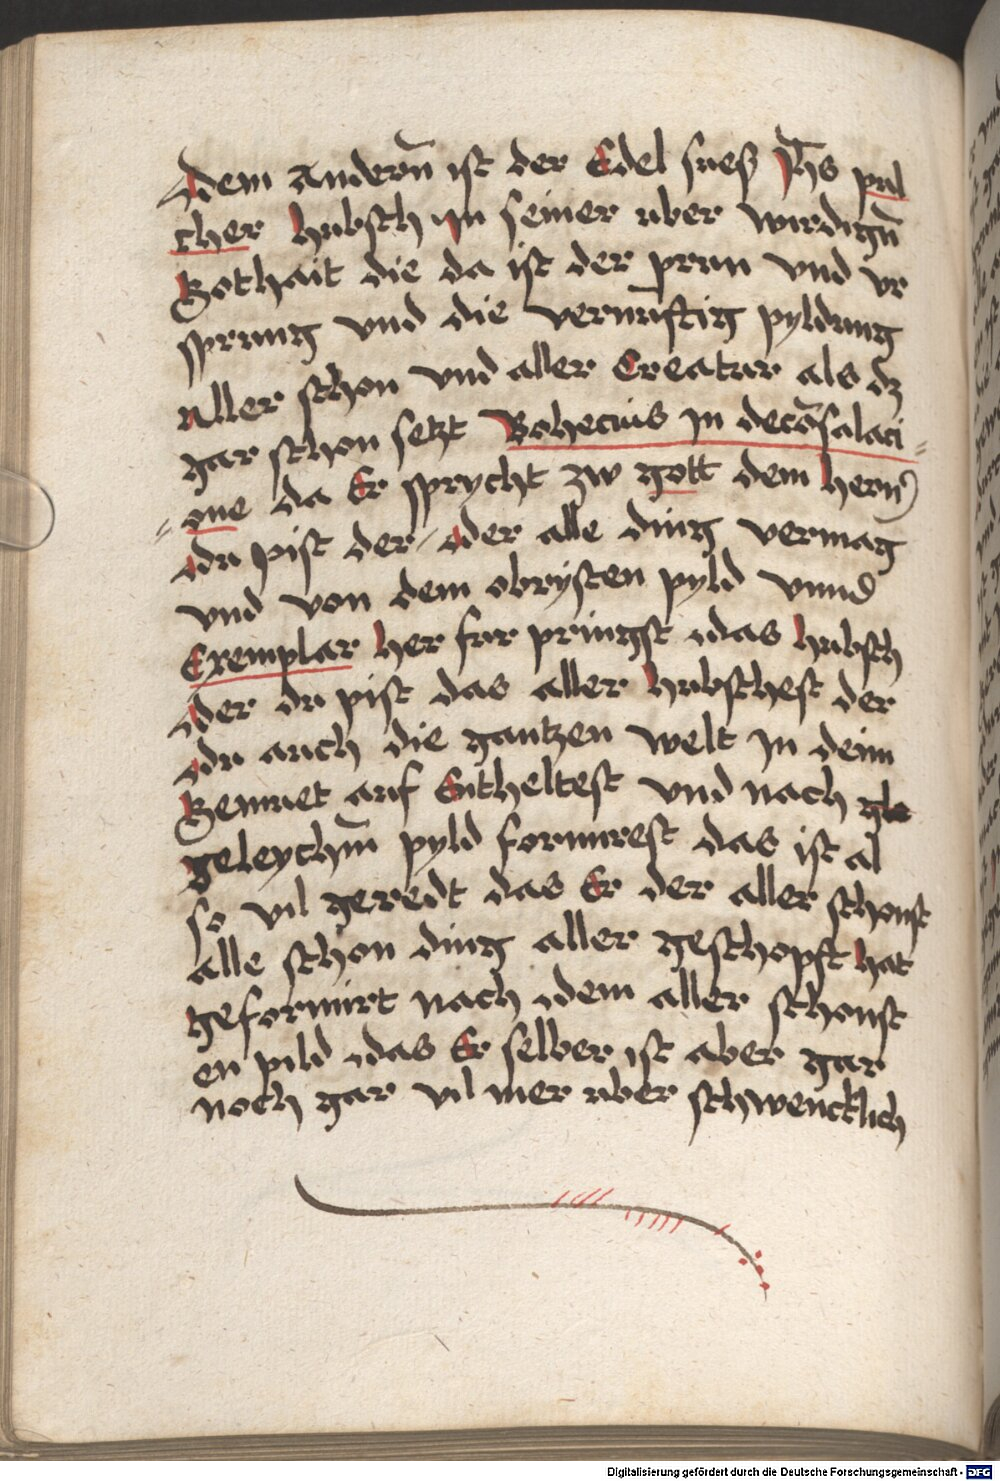 Adem Andern̄ ist der Edel sueß Jh̄s pul
cher hubsch jn seiner uber wirdign̄
Gothait die da ist der prun vnd vr
sprung vnd die vernuftig pyldung
aller schon vnd aller Creatur als dz
gar schon setzt Bohecius jn decōsalaci
one da Er sprycht zw gott dem hern
du pist der / der alle ding vermag
vnd von dem obrysten pyld vnnd
Exemplar her fur pringst das hubsch
der du pist das aller hubschest der
du auch die gantzen welt jn deim
Gemuet auf Entheltest vnd nach
geleychm̄ pyld formirest das ist al
so vil geredt das Er der aller schonst
alle schon ding aller geschopft hat
geformirt nach dem aller schonst
en pild das Er selber ist aber gar
noch gar vil mer uber schwencklich
Digitalisierung gefördert durch die Deutsche Forschungsgemeinschaft - DFG